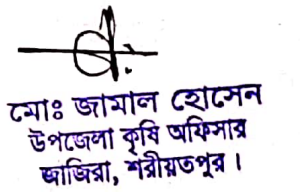 মোঃ জামাল হোসেন
উপজেলা কৃষি অফিসার
জাজিরা, শরীয়তপুর।